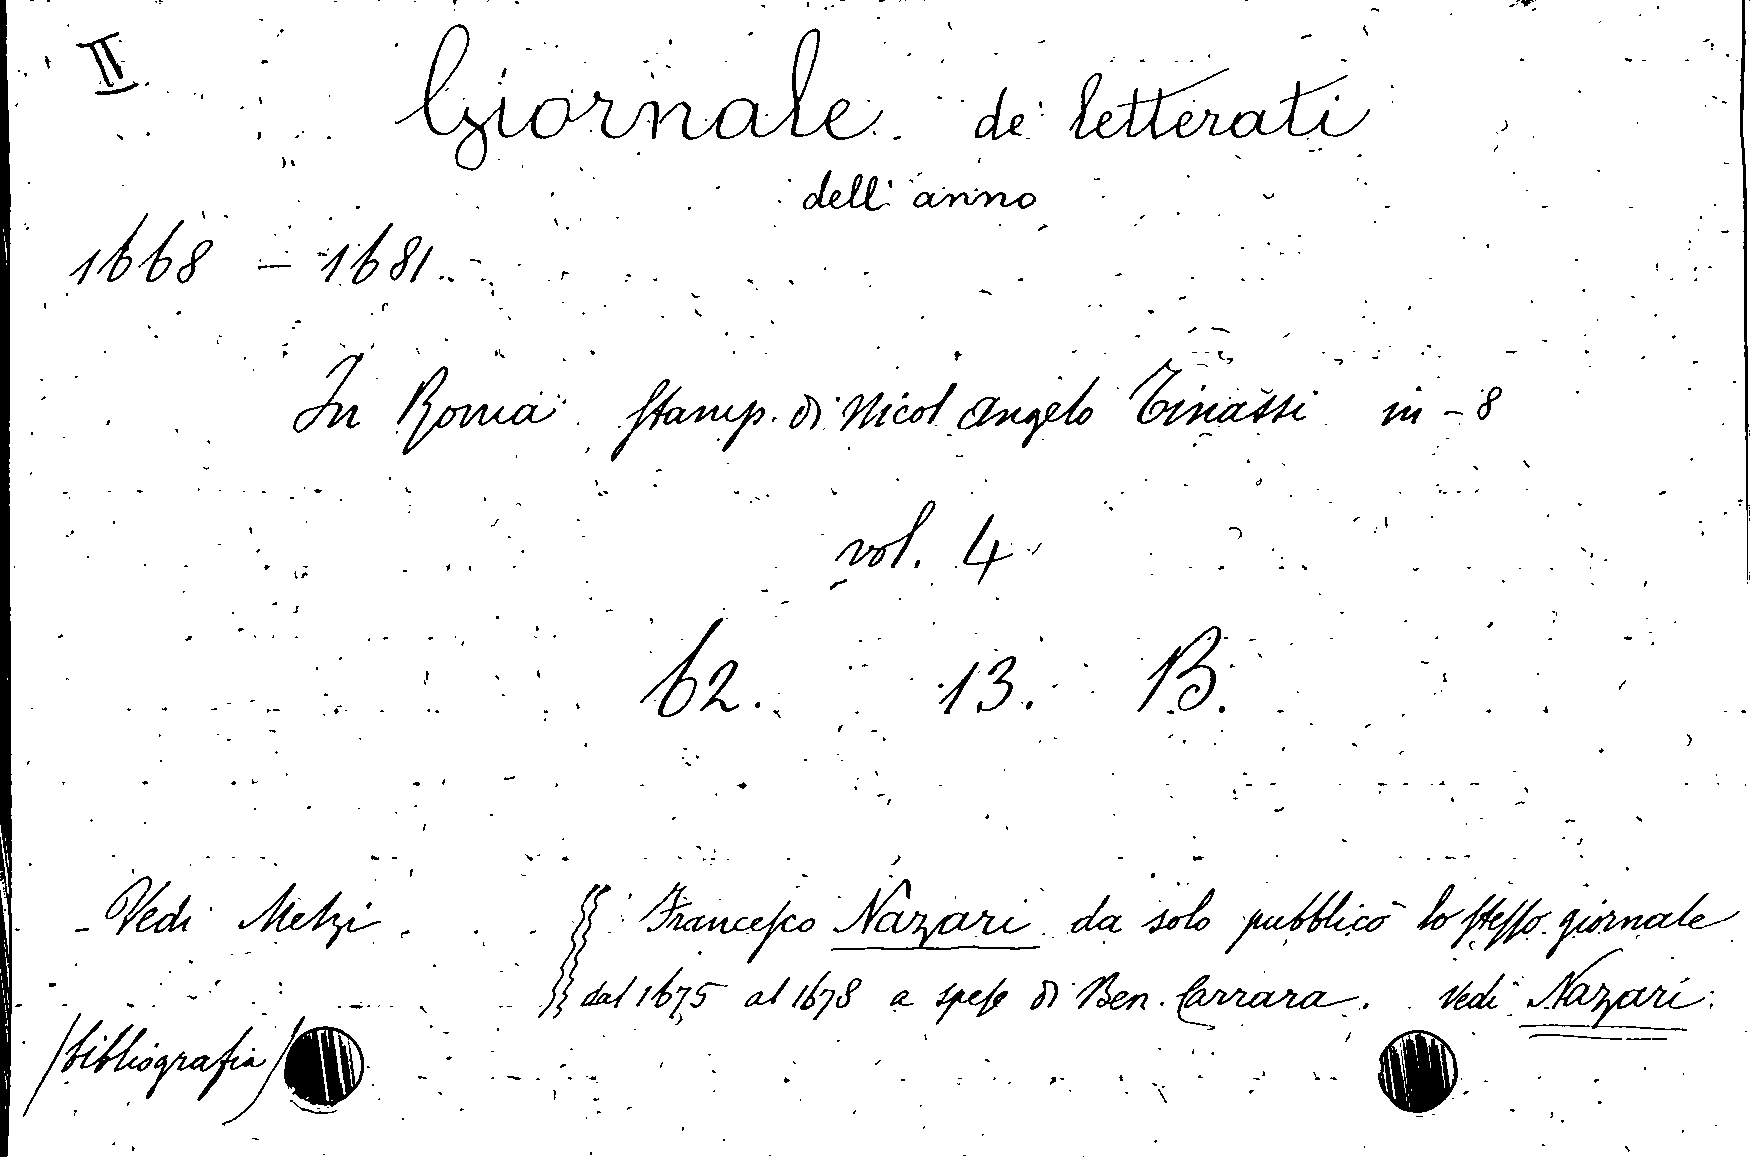 II
Giornale de' letterati
dell' anno
1668 – 1681.
In Roma Stamp. di Nicol Angelo Tinassi in-8
vol. 4
62. 13. B.
- Vedi Melzi
Francesco Nazari da solo pubblicò lo stesso giornale
dal 1675 al 1678 a spese di Ben. Carrara. Vedi Nazari.
/bibliografia/